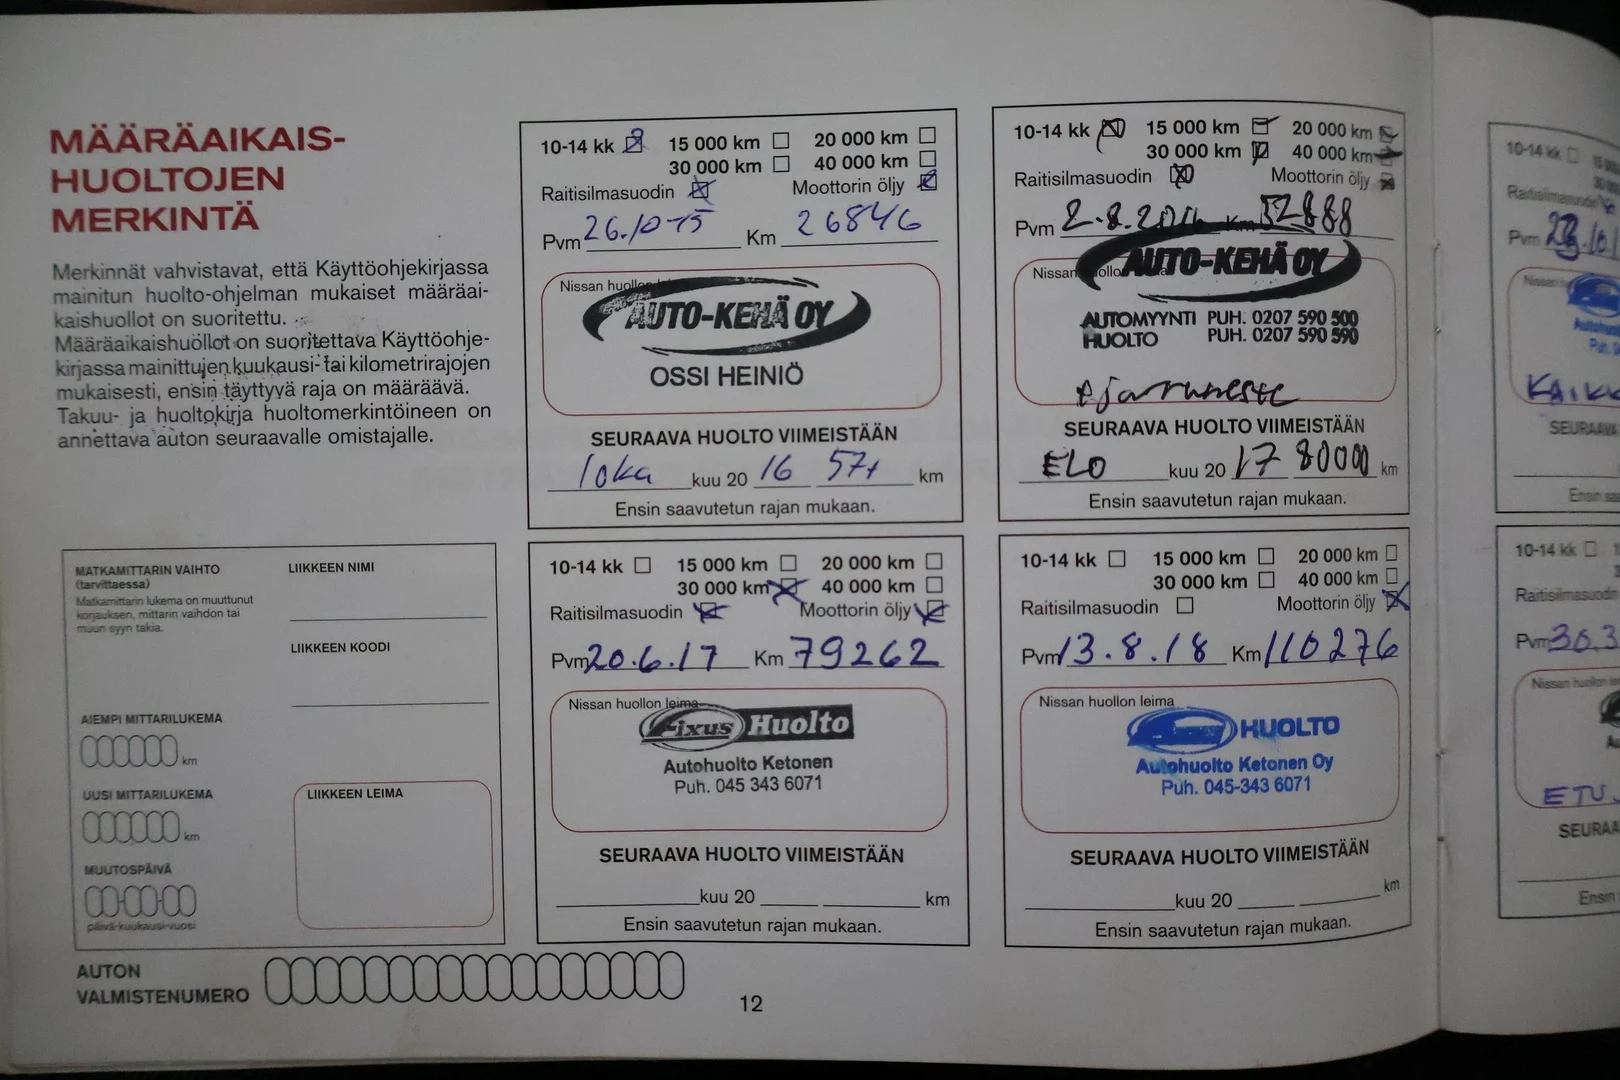 MÄÄRÄAIKAIS-
HUOLTOJEN
MERKINTÄ
Merkinnät vahvistavat, että Käyttöohjekirjassa
mainitun huolto-ohjelman mukaiset määräai-
kaishuollot on suoritettu.
Määräaikaishuollot on suoritettava Käyttöohje-
kirjassa mainittujen kuukausi- tai kilometrirajojen
mukaisesti, ensin täyttyvä raja on määräävä.
Takuu- ja huoltokirja huoltomerkintöineen on
annettava auton seuraavalle omistajalle.
10-14 kk 15 000 km 20 000 km
30 000 km 40 000 km
Raitisilmasuodin Moottorin öljy
Pvm 26.10-15 Km 26846
Nissan huollon
AUTO-KEHÄ OY
OSSI HEINIÖ
SEURAAVA HUOLTO VIIMEISTÄÄN
loka kuu 20 16 57t km
Ensin saavutetun rajan mukaan.
10-14 kk 15 000 km 20 000 km
30 000 km 40 000 km
Raitisilmasuodin Moottorin öljy
Pvm 2.8.2016 Km 52888
Nissan huollon
AUTO-KEHÄ OY
AUTOMYYNTI PUH. 0207 590 500
HUOLTO PUH. 0207 590 590
+ jarruneste
SEURAAVA HUOLTO VIIMEISTÄÄN
ELO kuu 20 17 80000 km
Ensin saavutetun rajan mukaan.
MATKAMITTARIN VAIHTO
(tarvittaessa)
Matkamittarin lukema on muuttunut
korjauksen, mittarin vaihdon tai
muun syyn takia.
LIIKKEEN NIMI
LIIKKEEN KOODI
AIEMPI MITTARILUKEMA
km
UUSI MITTARILUKEMA
km
MUUTOSPÄIVÄ
päivä-kuukausi-vuosi
LIIKKEEN LEIMA
10-14 kk 15 000 km 20 000 km
30 000 km 40 000 km
Raitisilmasuodin Moottorin öljy
Pvm 20.6.17 Km 79262
Nissan huollon leima
Fixus Huolto
Autohuolto Ketonen
Puh. 045 343 6071
SEURAAVA HUOLTO VIIMEISTÄÄN
kuu 20 km
Ensin saavutetun rajan mukaan.
10-14 kk 15 000 km 20 000 km
30 000 km 40 000 km
Raitisilmasuodin Moottorin öljy
Pvm 13.8.18 Km 110276
Nissan huollon leima
HUOLTO
Autohuolto Ketonen Oy
Puh. 045-343 6071
SEURAAVA HUOLTO VIIMEISTÄÄN
kuu 20 km
Ensin saavutetun rajan mukaan.
AUTON
VALMISTENUMERO
12
10-14 kk
Raitisilmasuodin
Pvm
Nissan
SEURAAVA
Ensin
10-14 kk
Raitisilmasuodin
Pvm 30.3
Nissan huollon
ETU
SEURAA
Ensin